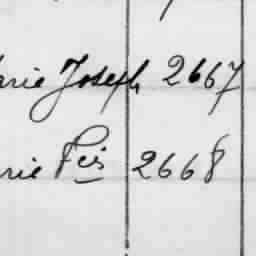 arie Joseph 2667
rie Fcis 2668